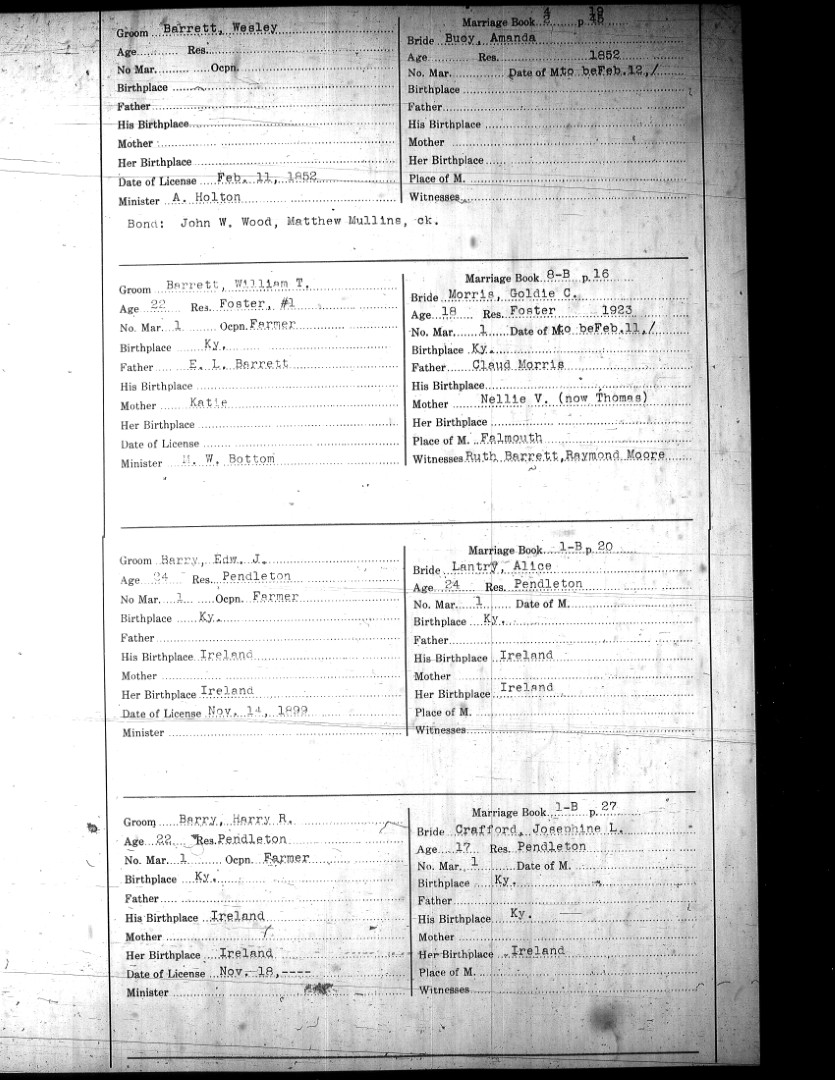 Groom Barrett, Wesley
Age Res.
No Mar. Ocpn.
Birthplace
Father
His Birthplace
Mother
Her Birthplace
Date of License Feb. 11, 1852
Minister A. Holton
Marriage Book p.
Bride Buoy, Amanda
Age Res. 1852
No. Mar. Date of M. to be Feb. 12, /
Birthplace
Father
His Birthplace
Mother
Her Birthplace
Place of M.
Witnesses
Bond: John W. Wood, Matthew Mullins, ck.
Groom Barrett, William T.
Age 22 Res. Foster, #1
No. Mar. 1 Ocpn. Farmer
Birthplace Ky.
Father E. L. Barrett
His Birthplace
Mother Katie
Her Birthplace
Date of License
Minister H. W. Bottom
Marriage Book 8-B p. 16
Bride Morris, Goldie C.
Age 18 Res. Foster 1923
No. Mar. 1 Date of M. to be Feb. 11, /
Birthplace Ky.
Father Claud Morris
His Birthplace
Mother Nellie V. (now Thomas)
Her Birthplace
Place of M. Falmouth
Witnesses Ruth Barrett, Raymond Moore
Groom Barry, Edw. J.
Age 24 Res. Pendleton
No Mar. 1 Ocpn. Farmer
Birthplace Ky.
Father
His Birthplace Ireland
Mother
Her Birthplace Ireland
Date of License Nov. 14, 1899
Minister
Marriage Book 1-B p. 20
Bride Lantry, Alice
Age 24 Res. Pendleton
No. Mar. 1 Date of M.
Birthplace Ky.
Father
His Birthplace Ireland
Mother
Her Birthplace Ireland
Place of M.
Witnesses
Groom Barry, Harry R.
Age 22 Res. Pendleton
No. Mar. 1 Ocpn. Farmer
Birthplace Ky.
Father
His Birthplace Ireland
Mother
Her Birthplace Ireland
Date of License Nov. 18,----
Minister
Marriage Book 1-B p. 27
Bride Crafford, Josephine L.
Age 17 Res. Pendleton
No. Mar. 1 Date of M.
Birthplace Ky.
Father
His Birthplace Ky.
Mother
Her Birthplace Ireland
Place of M.
Witnesses